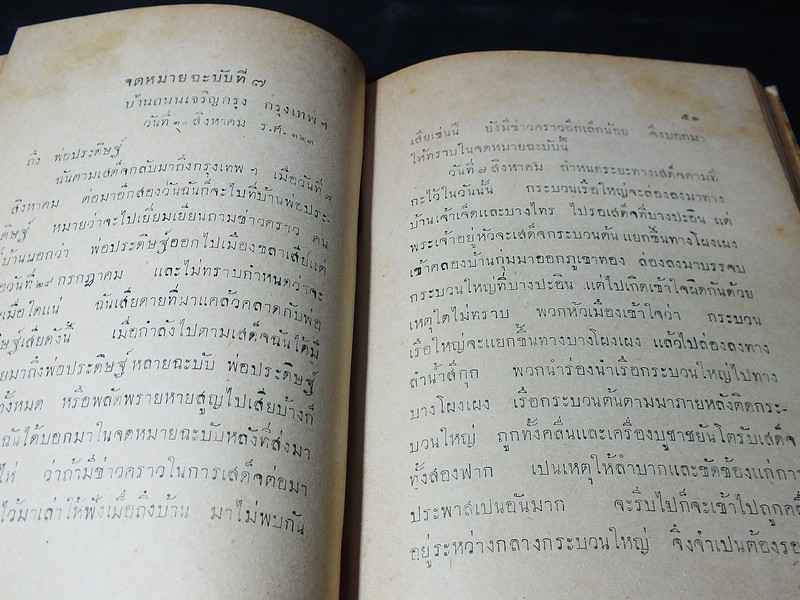 จดหมายฉะบับที่ ๗
บ้านถนนเจริญกรุง กรุงเทพฯ
วันที่ ๑๐ สิงหาคม ร.ศ. ๑๒๓
ถึง พ่อประดิษฐ์
ฉันตามเสด็จกลับมาถึงกรุงเทพฯ เมื่อวันที่ ๗
สิงหาคม ต่อมาอีกสองวันฉันก็จะไปที่บ้านพ่อประ-
ดิษฐ์ หมายว่าจะไปเยี่ยมเยียนถามข่าวคราว คน
บ้านบอกว่า พ่อประดิษฐ์ออกไปเมืองชลาเสียแต่
วันที่ ๒๙ กรกฎาคม และไม่ทราบกำหนดว่าจะ
เมื่อใดแน่ ฉันเสียดายที่มาแคล้วคลาดกับพ่อ
เสียดังนี้ เมื่อกำลังไปตามเสด็จฉันได้มี
มาถึงพ่อประดิษฐ์หลายฉะบับ พ่อประดิษฐ์
ทั้งหมด หรือพลัดพรายหายสูญไปเสียบ้างก็
ฉันได้บอกมาในจดหมายฉะบับหลังที่ส่งมา
ว่าถ้ามีข่าวคราวในการเสด็จต่อมา
ไว้มาเล่าให้ฟังเมื่อถึงบ้าน มาไม่พบกัน
๕๑
เสียเช่นนี้ ยังมีข่าวคราวอีกเล็กน้อย จึงบอกมา
ให้ทราบในจดหมายฉะบับนี้
วันที่ ๗ สิงหาคม กำหนดระยะทางเสด็จตามที่
กะไว้ในวันนั้น กระบวนเรือใหญ่จะล่องลงมาทาง
บ้านเจ้าเจ็ดและบางไทร ไปรอเสด็จที่บางปะอิน แต่
พระเจ้าอยู่หัวจะเสด็จกระบวนต้น แยกขึ้นทางโผงเผง
เข้าคลองบ้านกุ่มมาออกภูเขาทอง ล่องลงมาบรรจบ
กระบวนใหญ่ที่บางปะอิน แต่ไปเกิดเข้าใจผิดกันด้วย
เหตุใดไม่ทราบ พวกหัวเมืองเข้าใจว่า กระบวน
เรือใหญ่จะแยกขึ้นทางบางโผงเผง แล้วไปล่องลงทาง
ลำน้ำสีกุก พวกนำร่องนำเรือกระบวนใหญ่ไปทาง
บางโผงเผง เรือกระบวนต้นตามมาภายหลังติดกระ-
บวนใหญ่ ถูกทั้งคลื่นและเครื่องบูชาชยันโตรับเสด็จ
ทั้งสองฟาก เปนเหตุให้ลำบากและขัดข้องแก่การ
ประพาสเปนอันมาก จะรีบไปก็จะเข้าไปถูกคลื่
อยู่ระหว่างกลางกระบวนใหญ่ จึงจำเปนต้องรอ